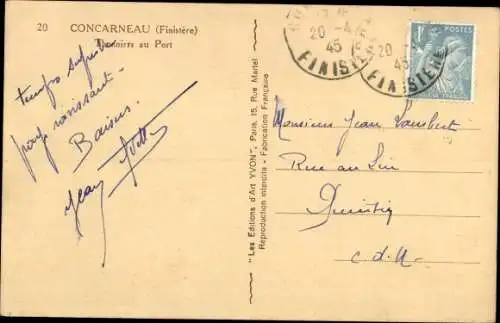 20 CONCARNEAU (Finistère)
Thoniers au Port
temps superbe
pays ravissant -
Baisers.
Jean Yvette
"Les Editions d'Art YVON", Paris, 15, Rue Martel
Reproduction interdite - Fabrication Française
20 -4
45
FINISTERE
20 -4
45
FINISTERE
1F POSTES
Monsieur Jean Lambert
Rue au Lin
Quintin
C.d.N